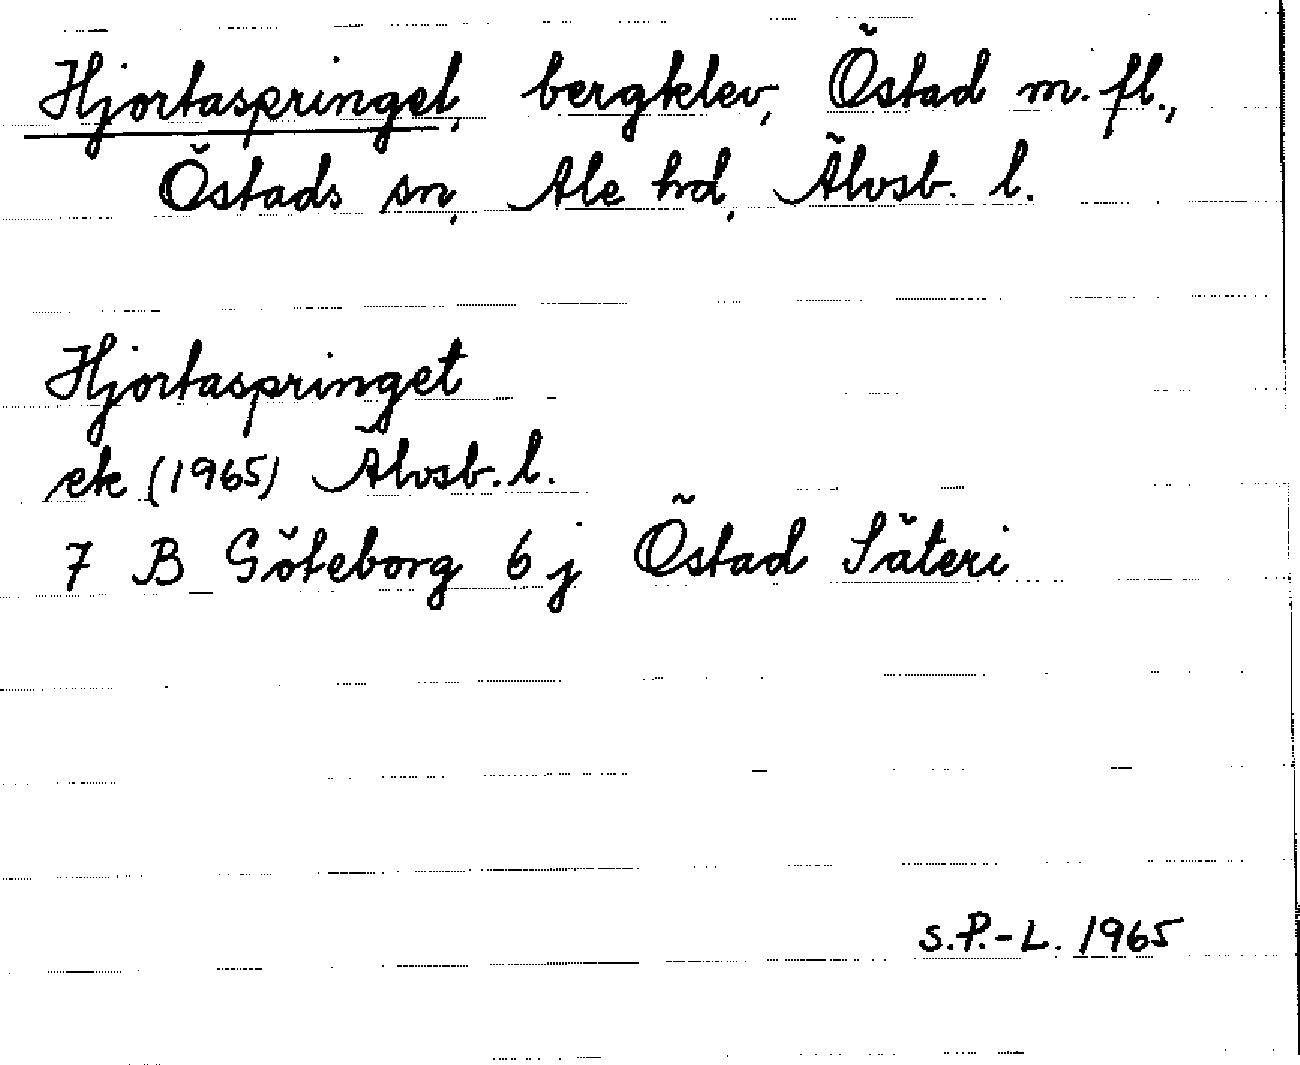 Hjortaspringet, bergklev, Östad m. fl.,
Östads sn, Ale hd, Älvsb. l.
Hjortaspringet
ek (1965) Älvsb. l.
7 B Göteborg 6 j Östad Säteri
S.P.-L. 1965